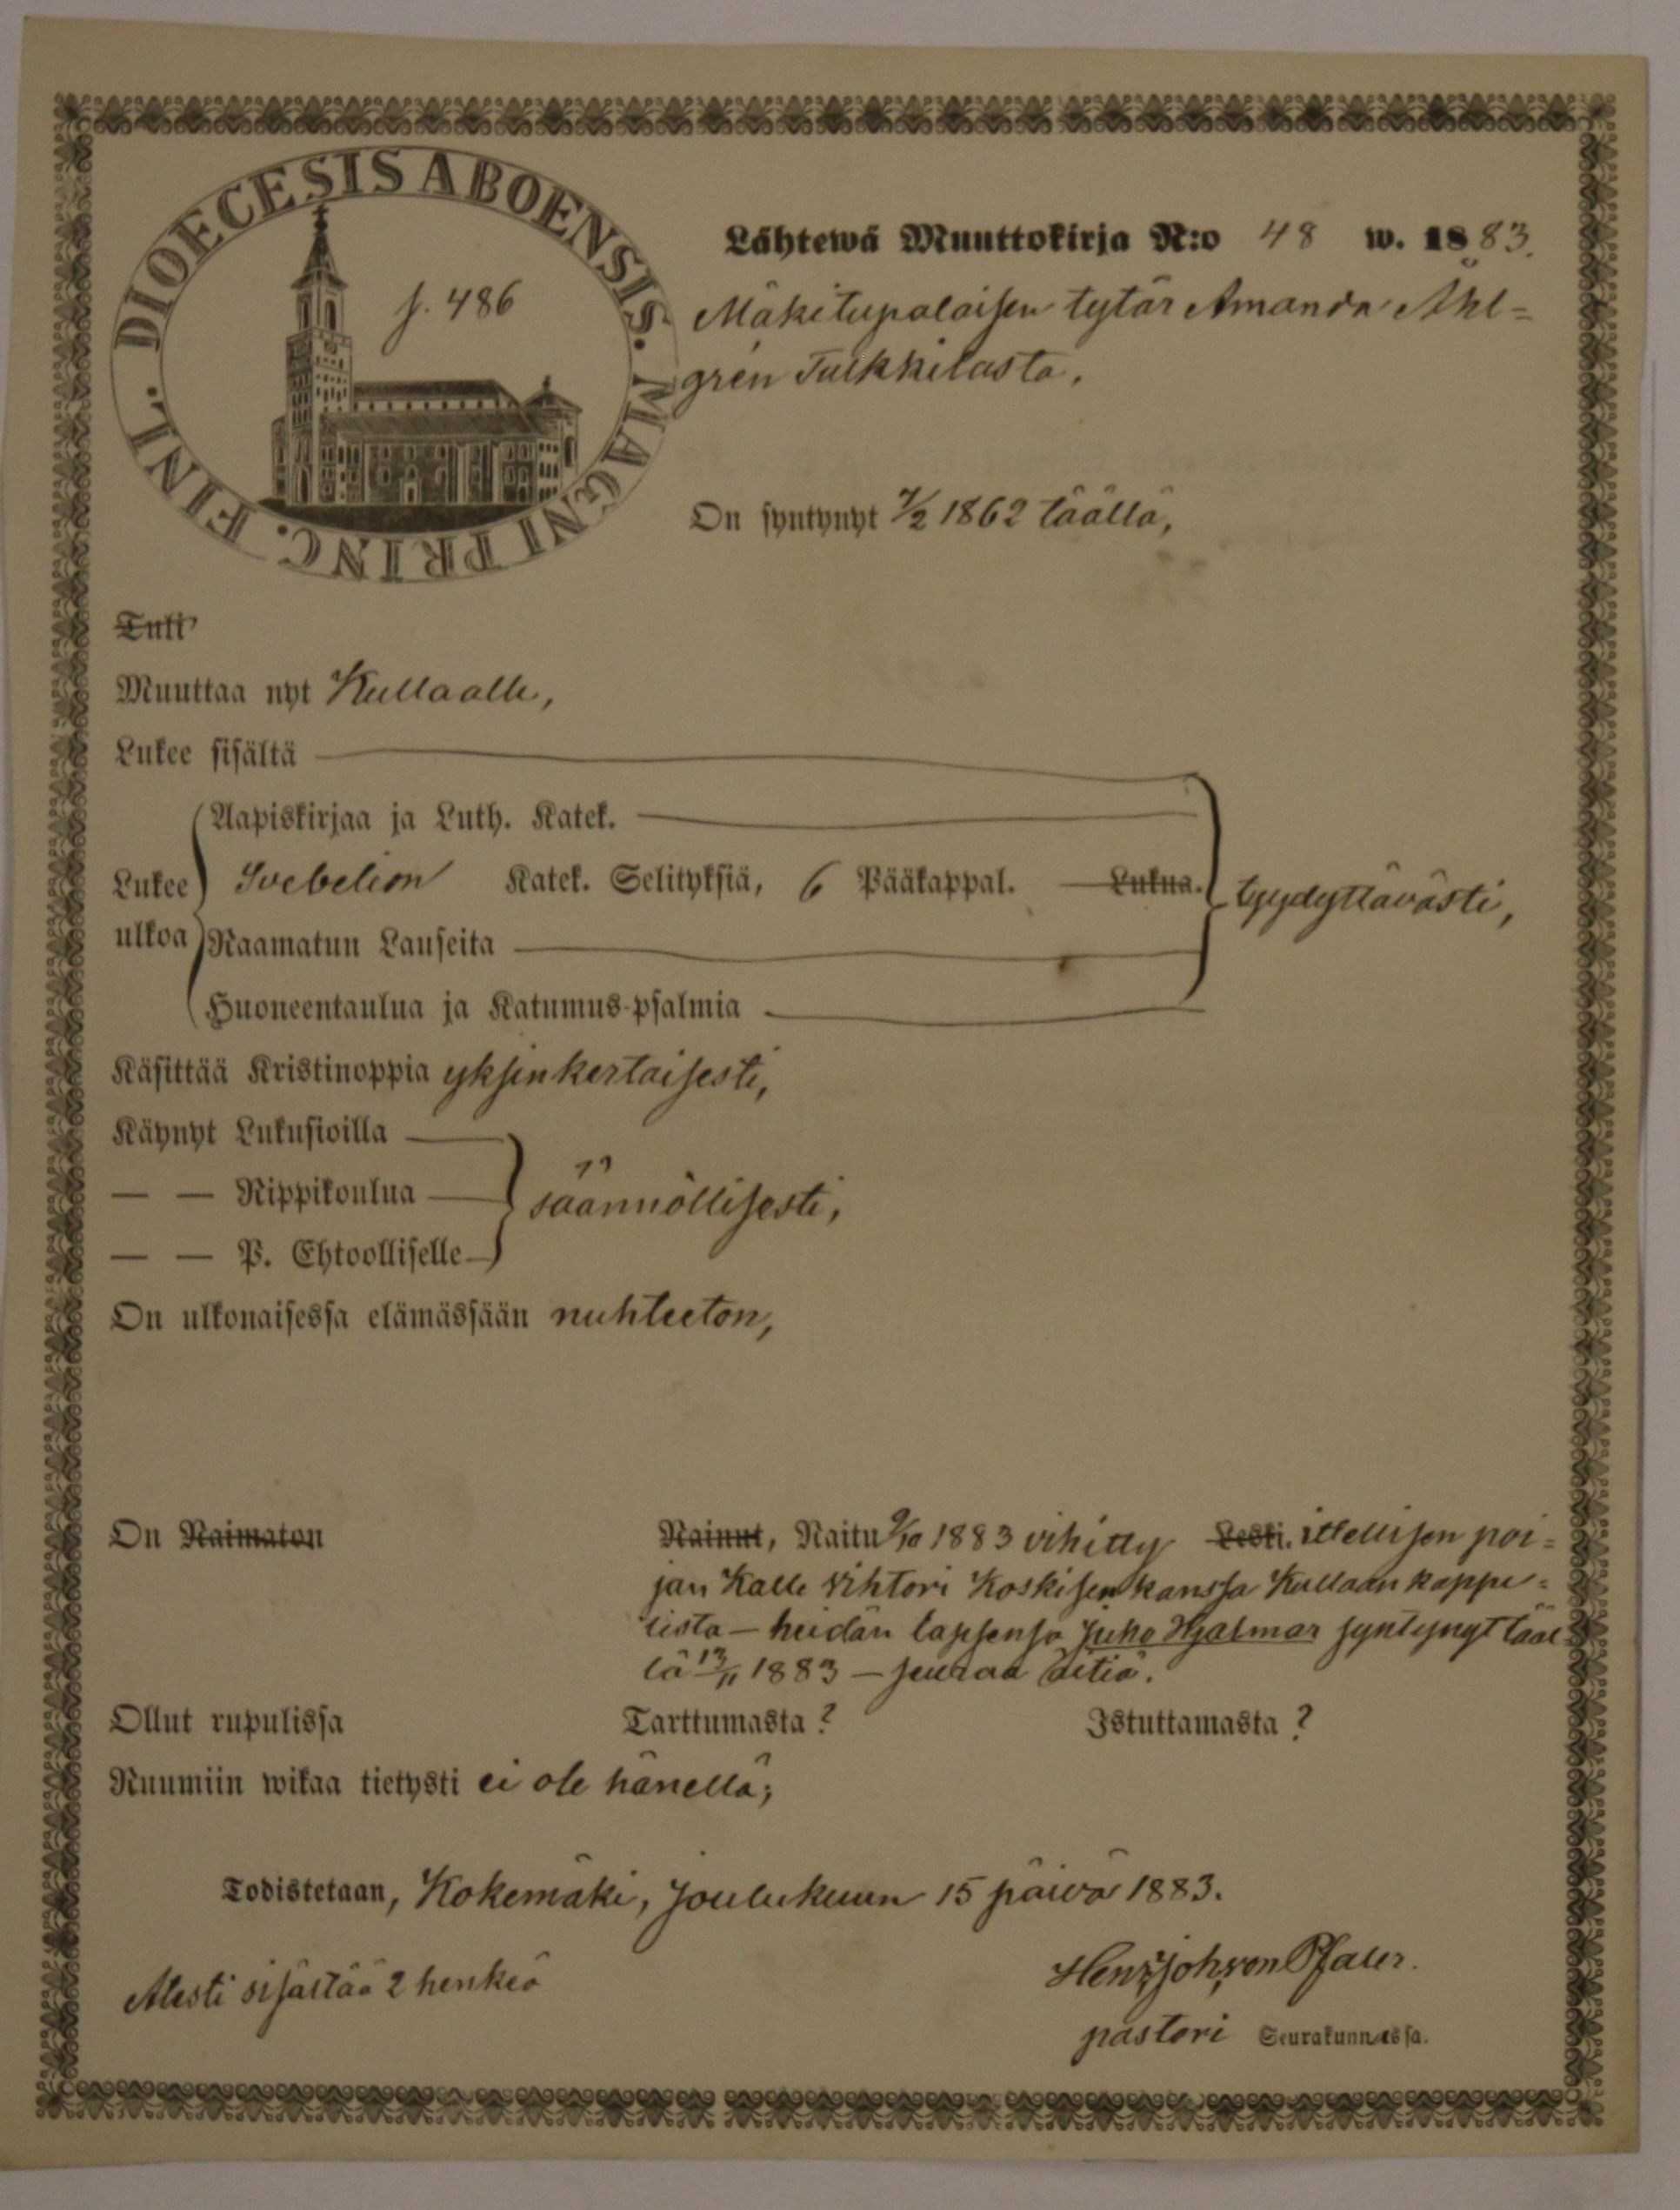 DIOECESIS ABOENSIS. MAGNI PRINC. FINL.
s. 486
Lähtewä Muuttokirja N:o 48 w. 1883.
Mäkitupalaisen tytär Amanda Åhl=
grén Tulkkilasta.
On syntynyt 7/2 1862 täällä,
Tuli
Muuttaa nyt Kullaalle,
Lukee sisältä
Aapiskirjaa ja Luth. Katek.
Lukee ulkoa Svebelion Katek. Selityksiä, 6 Pääkappal. Lukua. tyydyttävästi,
Raamatun Lauseita
Huoneentaulua ja Katumus-psalmia
Käsittää Kristinoppia yksinkertaisesti,
Käynyt Lukusioilla
— — Rippikoulua säännöllisesti,
— — P. Ehtoolliselle
On ulkonaisessa elämässään nuhteeton,
On Naimaton Nainut, Naitu 9/10 1883 vihitty Leski. ittellisen poi=
jan Kalle Vihtori Koskisen kanssa Kullaan kappe=
lista — heidän lapsensa Juho Hjalmar syntynyt tääl=
lä 13/11 1883 — seuraa äitiä.
Ollut rupulissa Tarttumasta ? Istuttamasta ?
Ruumiin wikaa tietysti ei ole hänellä;
Todistetaan, Kokemäki, Joulukuun 15 päivä 1883.
Atesti sisältää 2 henkeä
Henr. Joh. von Pfaler.
pastori Seurakunnassa.